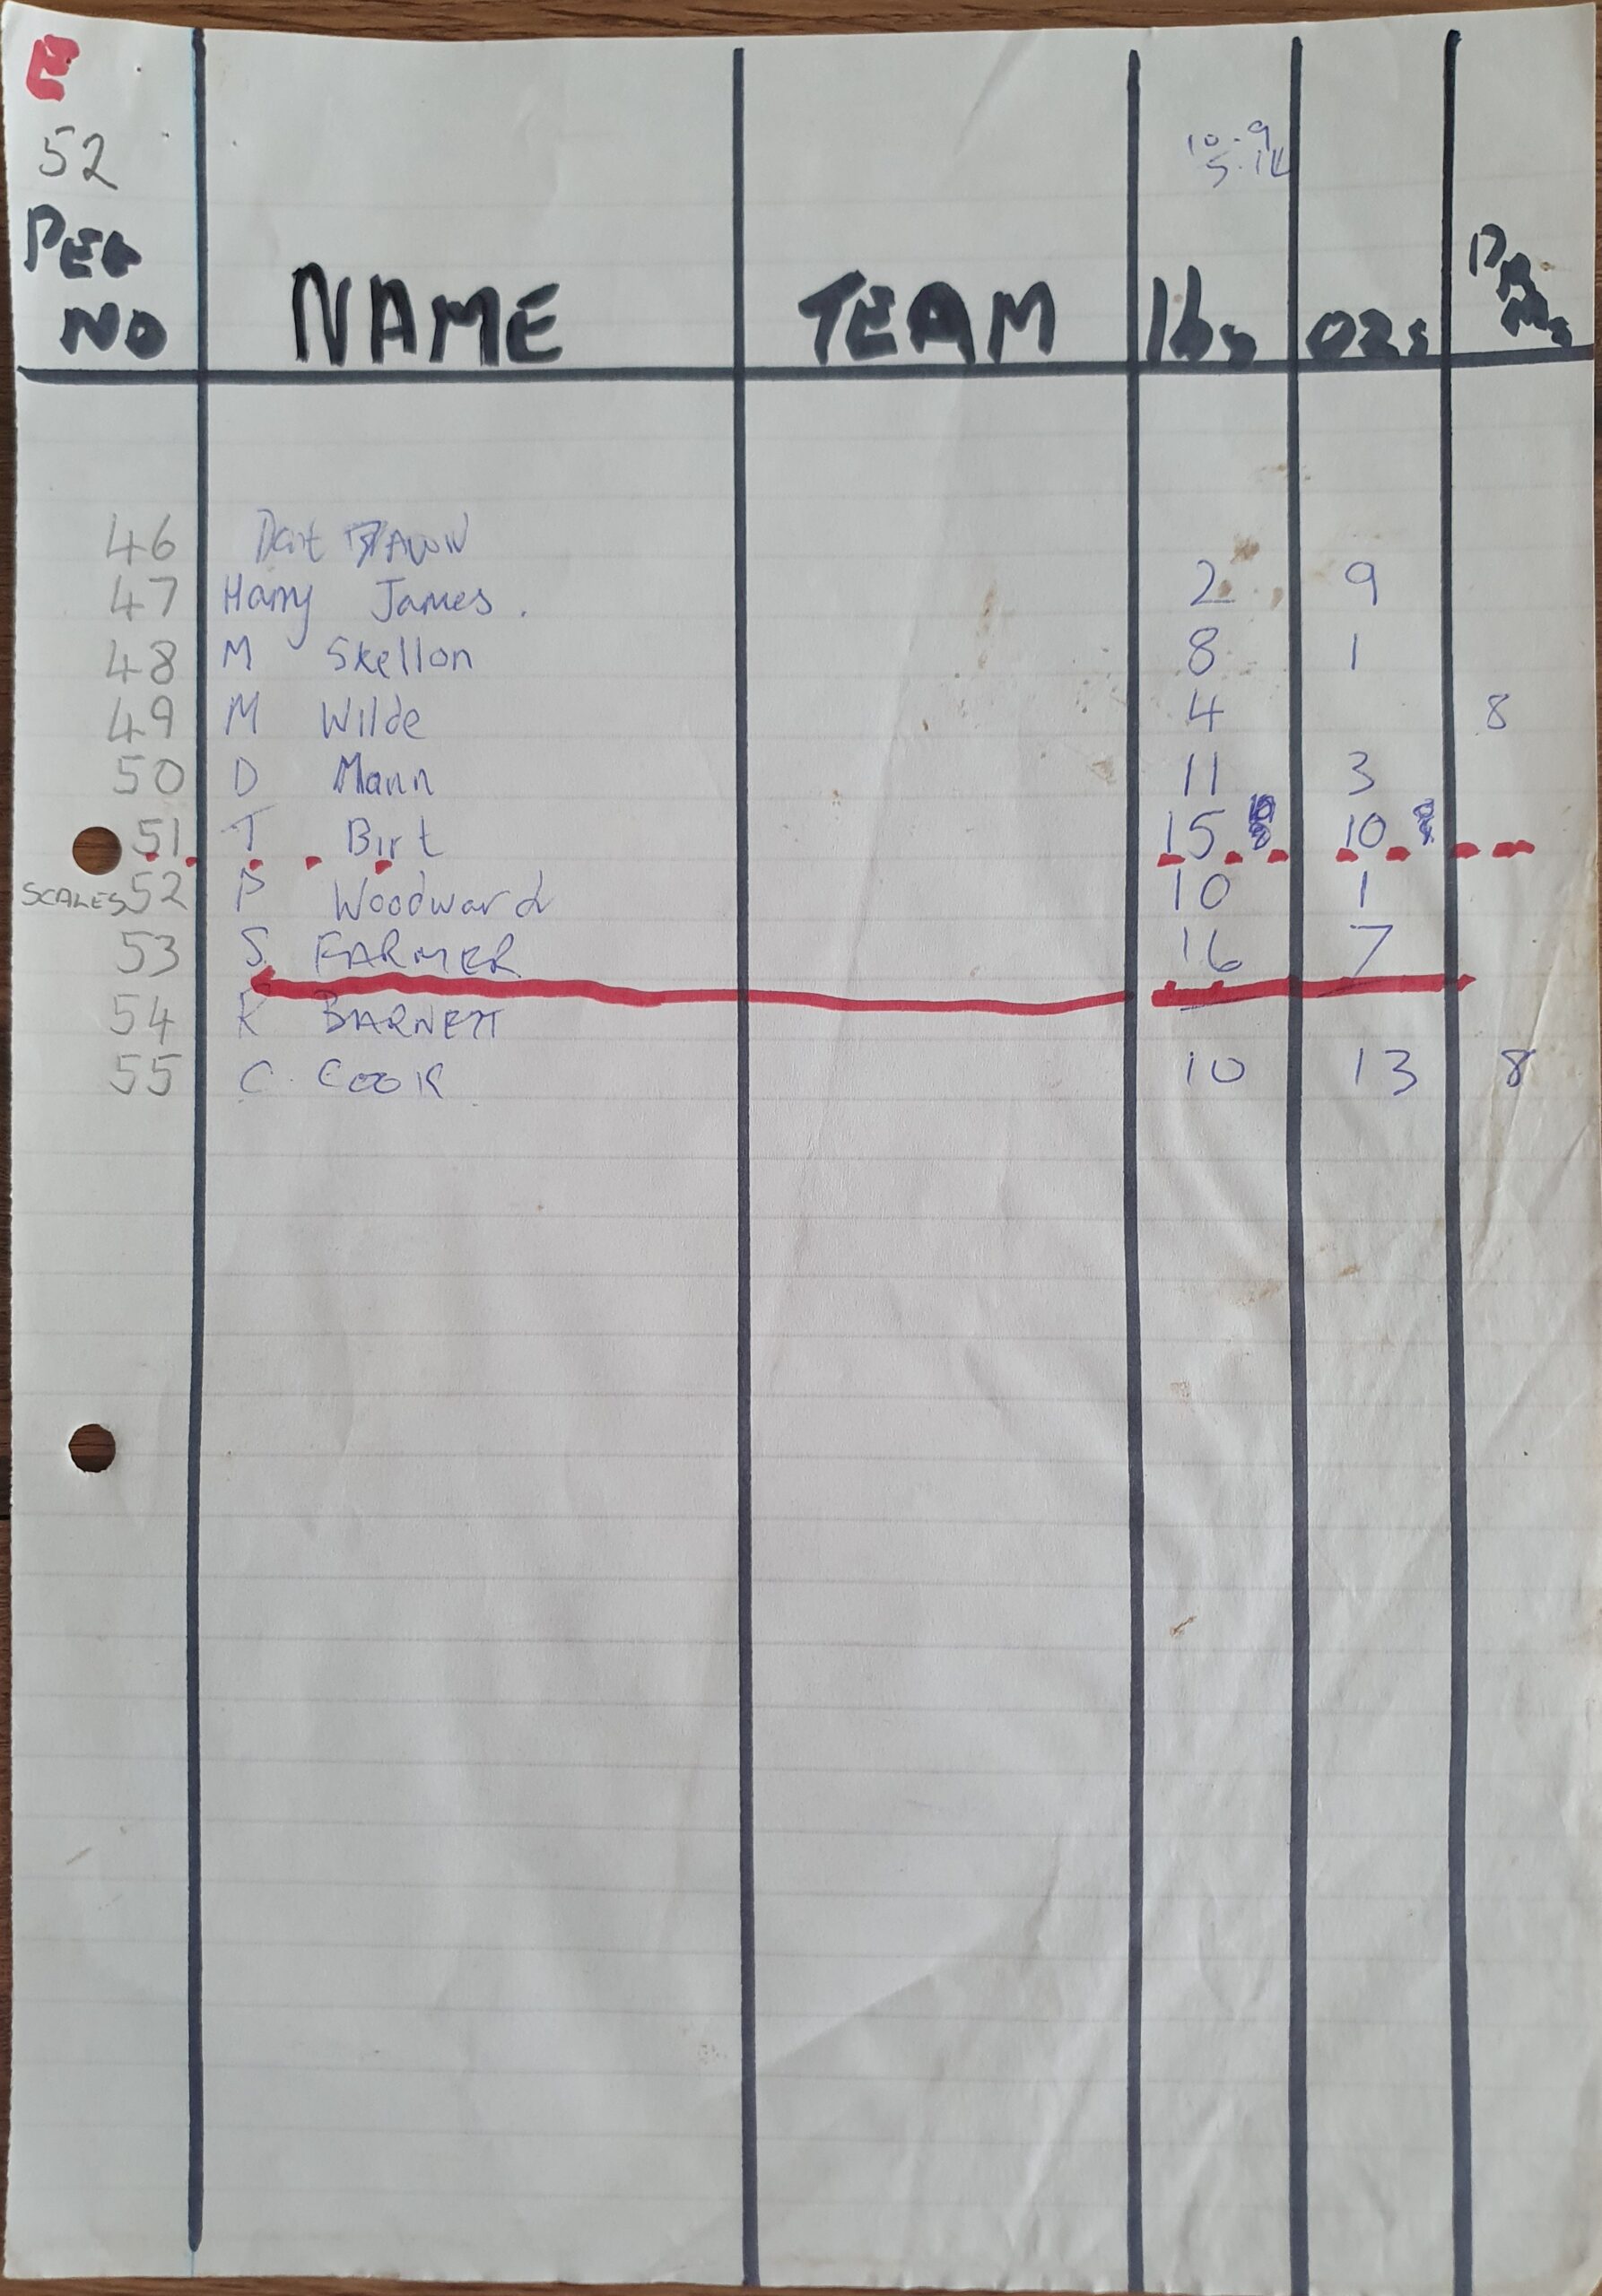 E
52
10.9
5.14
PEG NO NAME TEAM lbs ozs DRMs
46
47 Harry James. 2 9
48 M Skellon 8 1
49 M Wilde 4 8
50 D Mann 11 3
51 T Birt 15 10
SCALES 52 P Woodward 10 1
53 S FARMER 16 7
54 K BARNETT
55 C. COOK 10 13 8